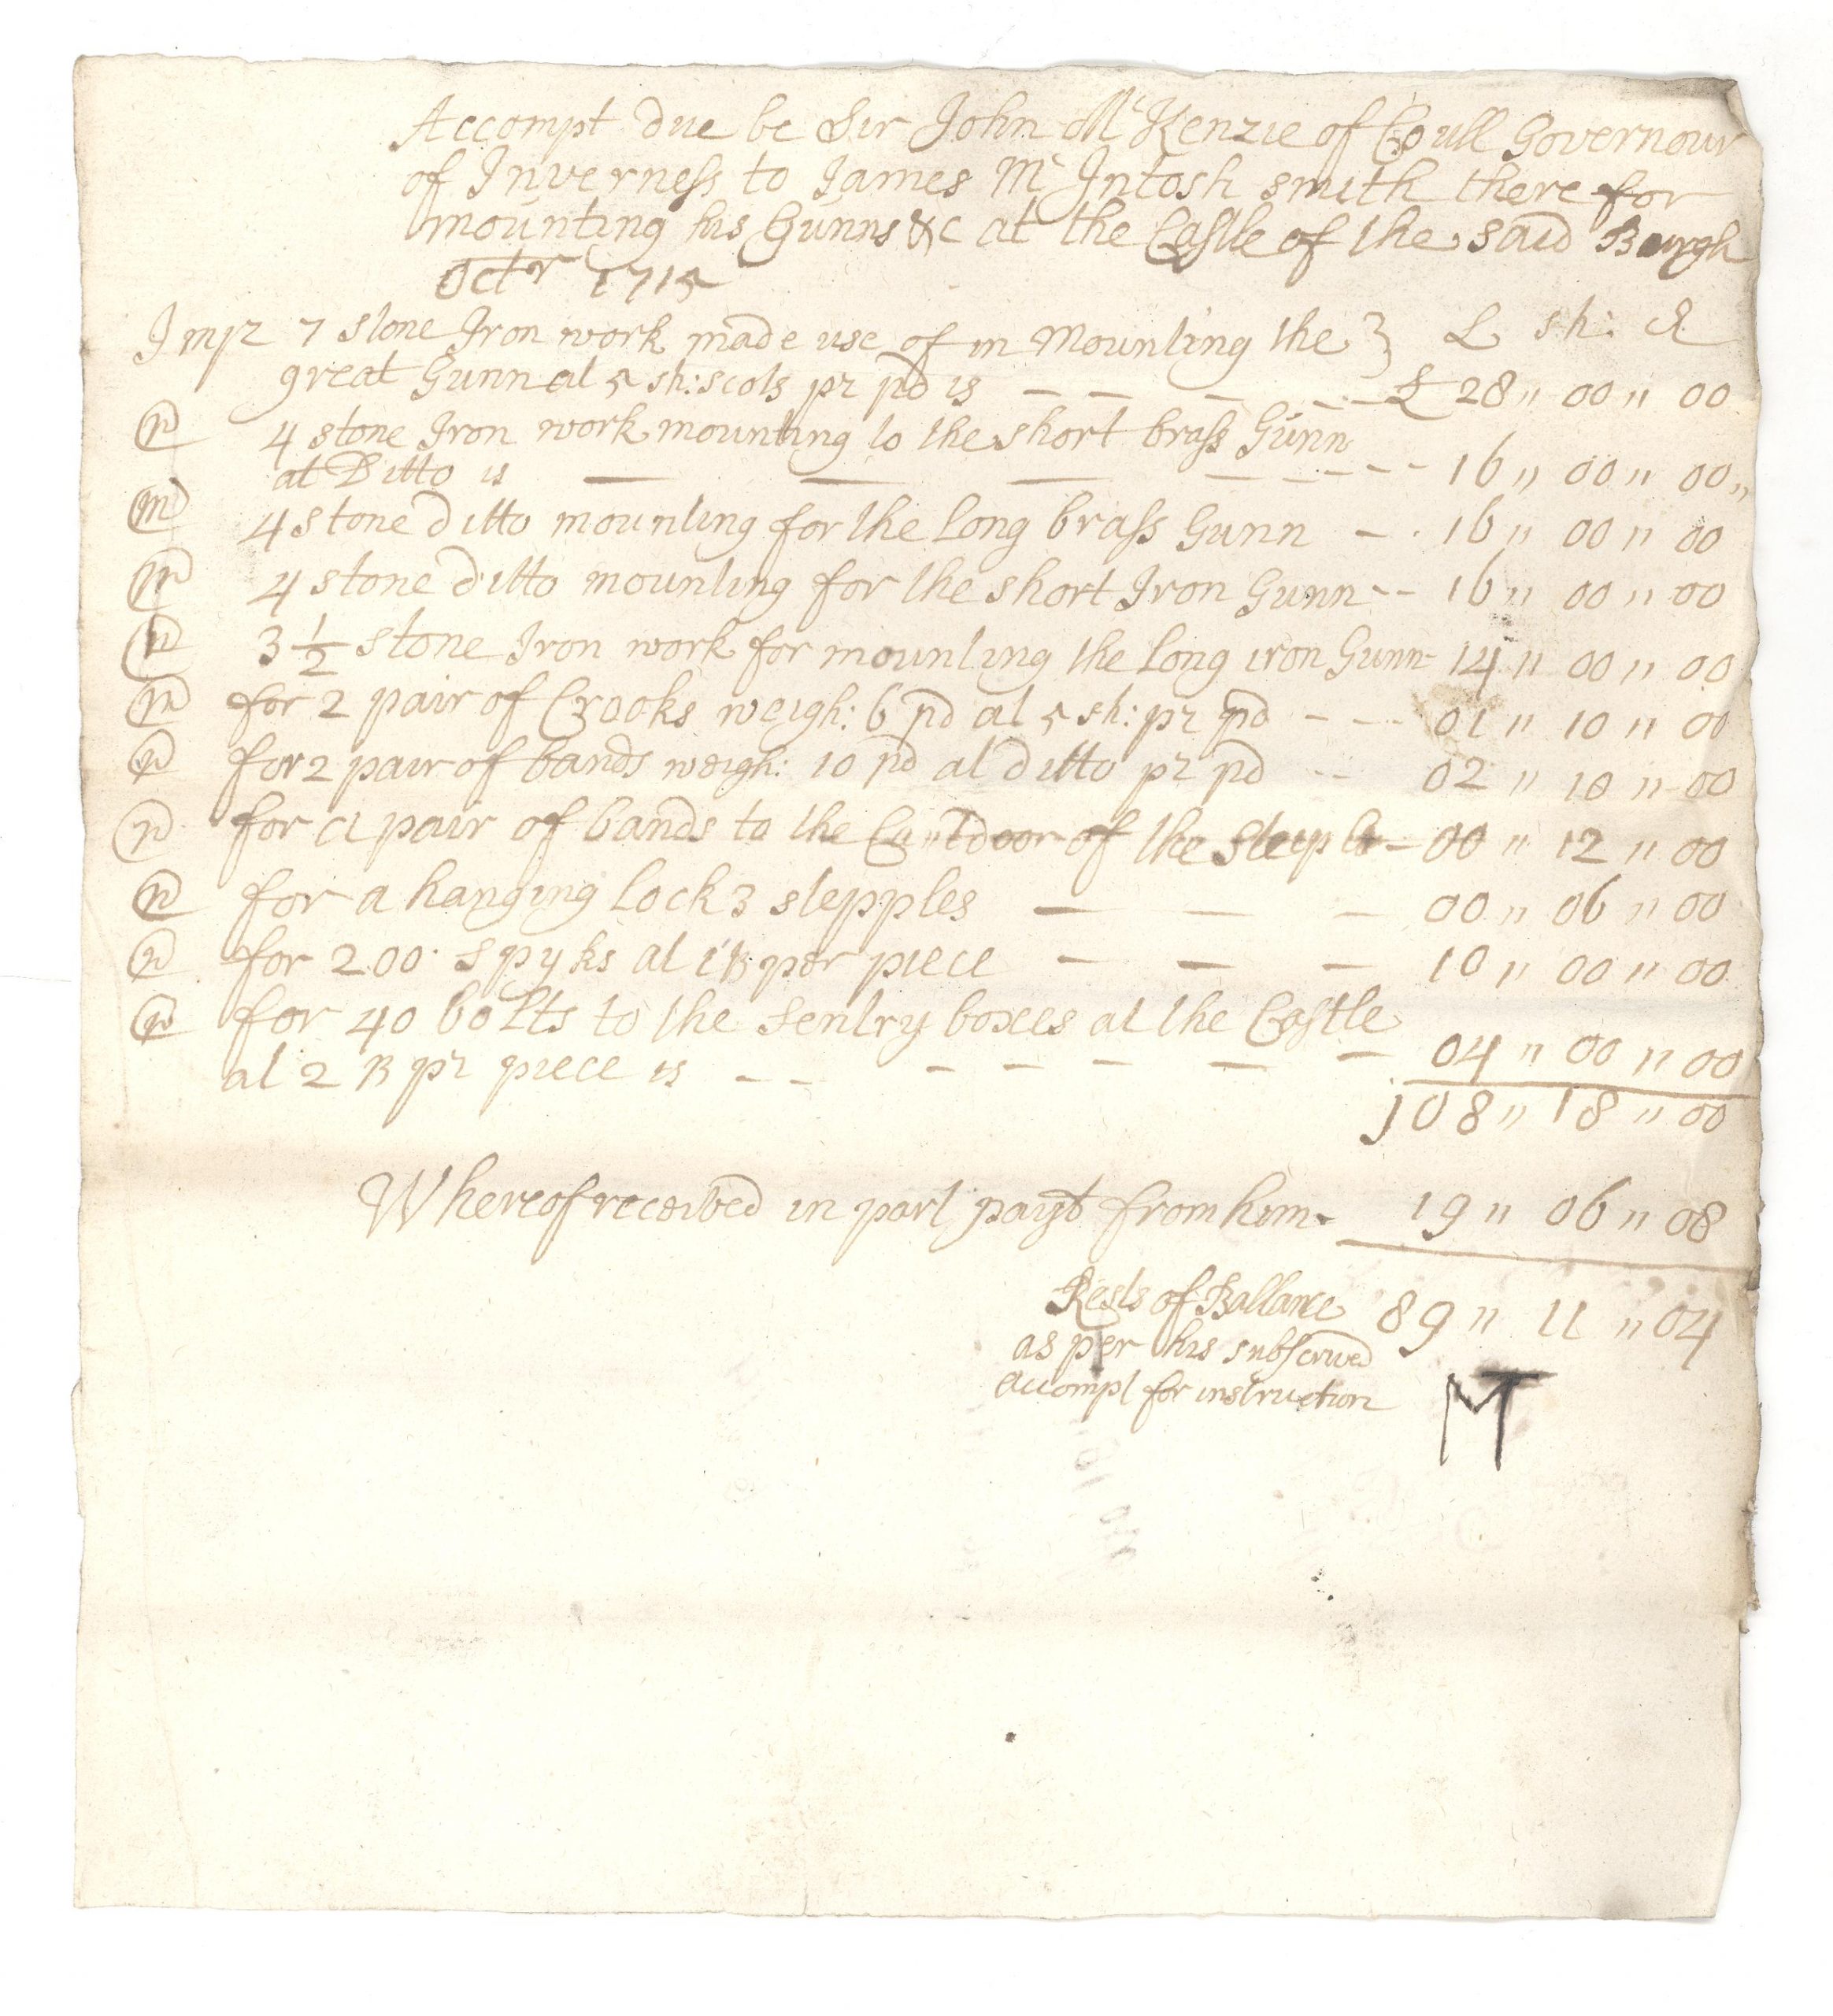 Accompt due be Sir John McKenzie of Coull Governour
of Inverness to James McIntosh smith there for
mounting his Gunns &c at the Castle of the said Burgh
Octr 1715
Impr 7 stone Iron work made use of in Mounting the } L sh: d
great Gunn at 5 sh: scots pr pd is — — — — £ 28 ,, 00 ,, 00
4 stone Iron work mounting to the short brass Gunn
at Ditto is — — — — — — 16 ,, 00 ,, 00 ,,
4 stone ditto mounting for the Long brass Gunn — . 16 ,, 00 ,, 00
4 stone ditto mounting for the short Iron Gunn -- 16 ,, 00 ,, 00
3 1/2 stone Iron work for mounting the Long iron Gunn - 14 ,, 00 ,, 00
for 2 pair of Crooks weigh: 6 pd at 5 sh: pr pd - - - 01 ,, 10 ,, 00
for 2 pair of bands weigh: 10 pd at ditto pr pd -- 02 ,, 10 ,, 00
for a pair of bands to the door of the Steeple - 00 ,, 12 ,, 00
for a hanging lock 3 stepples — — — 00 ,, 06 ,, 00
for 200 spyks at 1 ß per piece — — — 10 ,, 00 ,, 00
for 40 bolts to the Sentry boxes at the Castle
at 2 ß pr piece is - - — — — — — 04 ,, 00 ,, 00
108 ,, 18 ,, 00
Whereof received in part payt from him - 19 ,, 06 ,, 08
Rests of Ballance 89 ,, 11 ,, 04
as per his subscrived
accompt for instruction MT